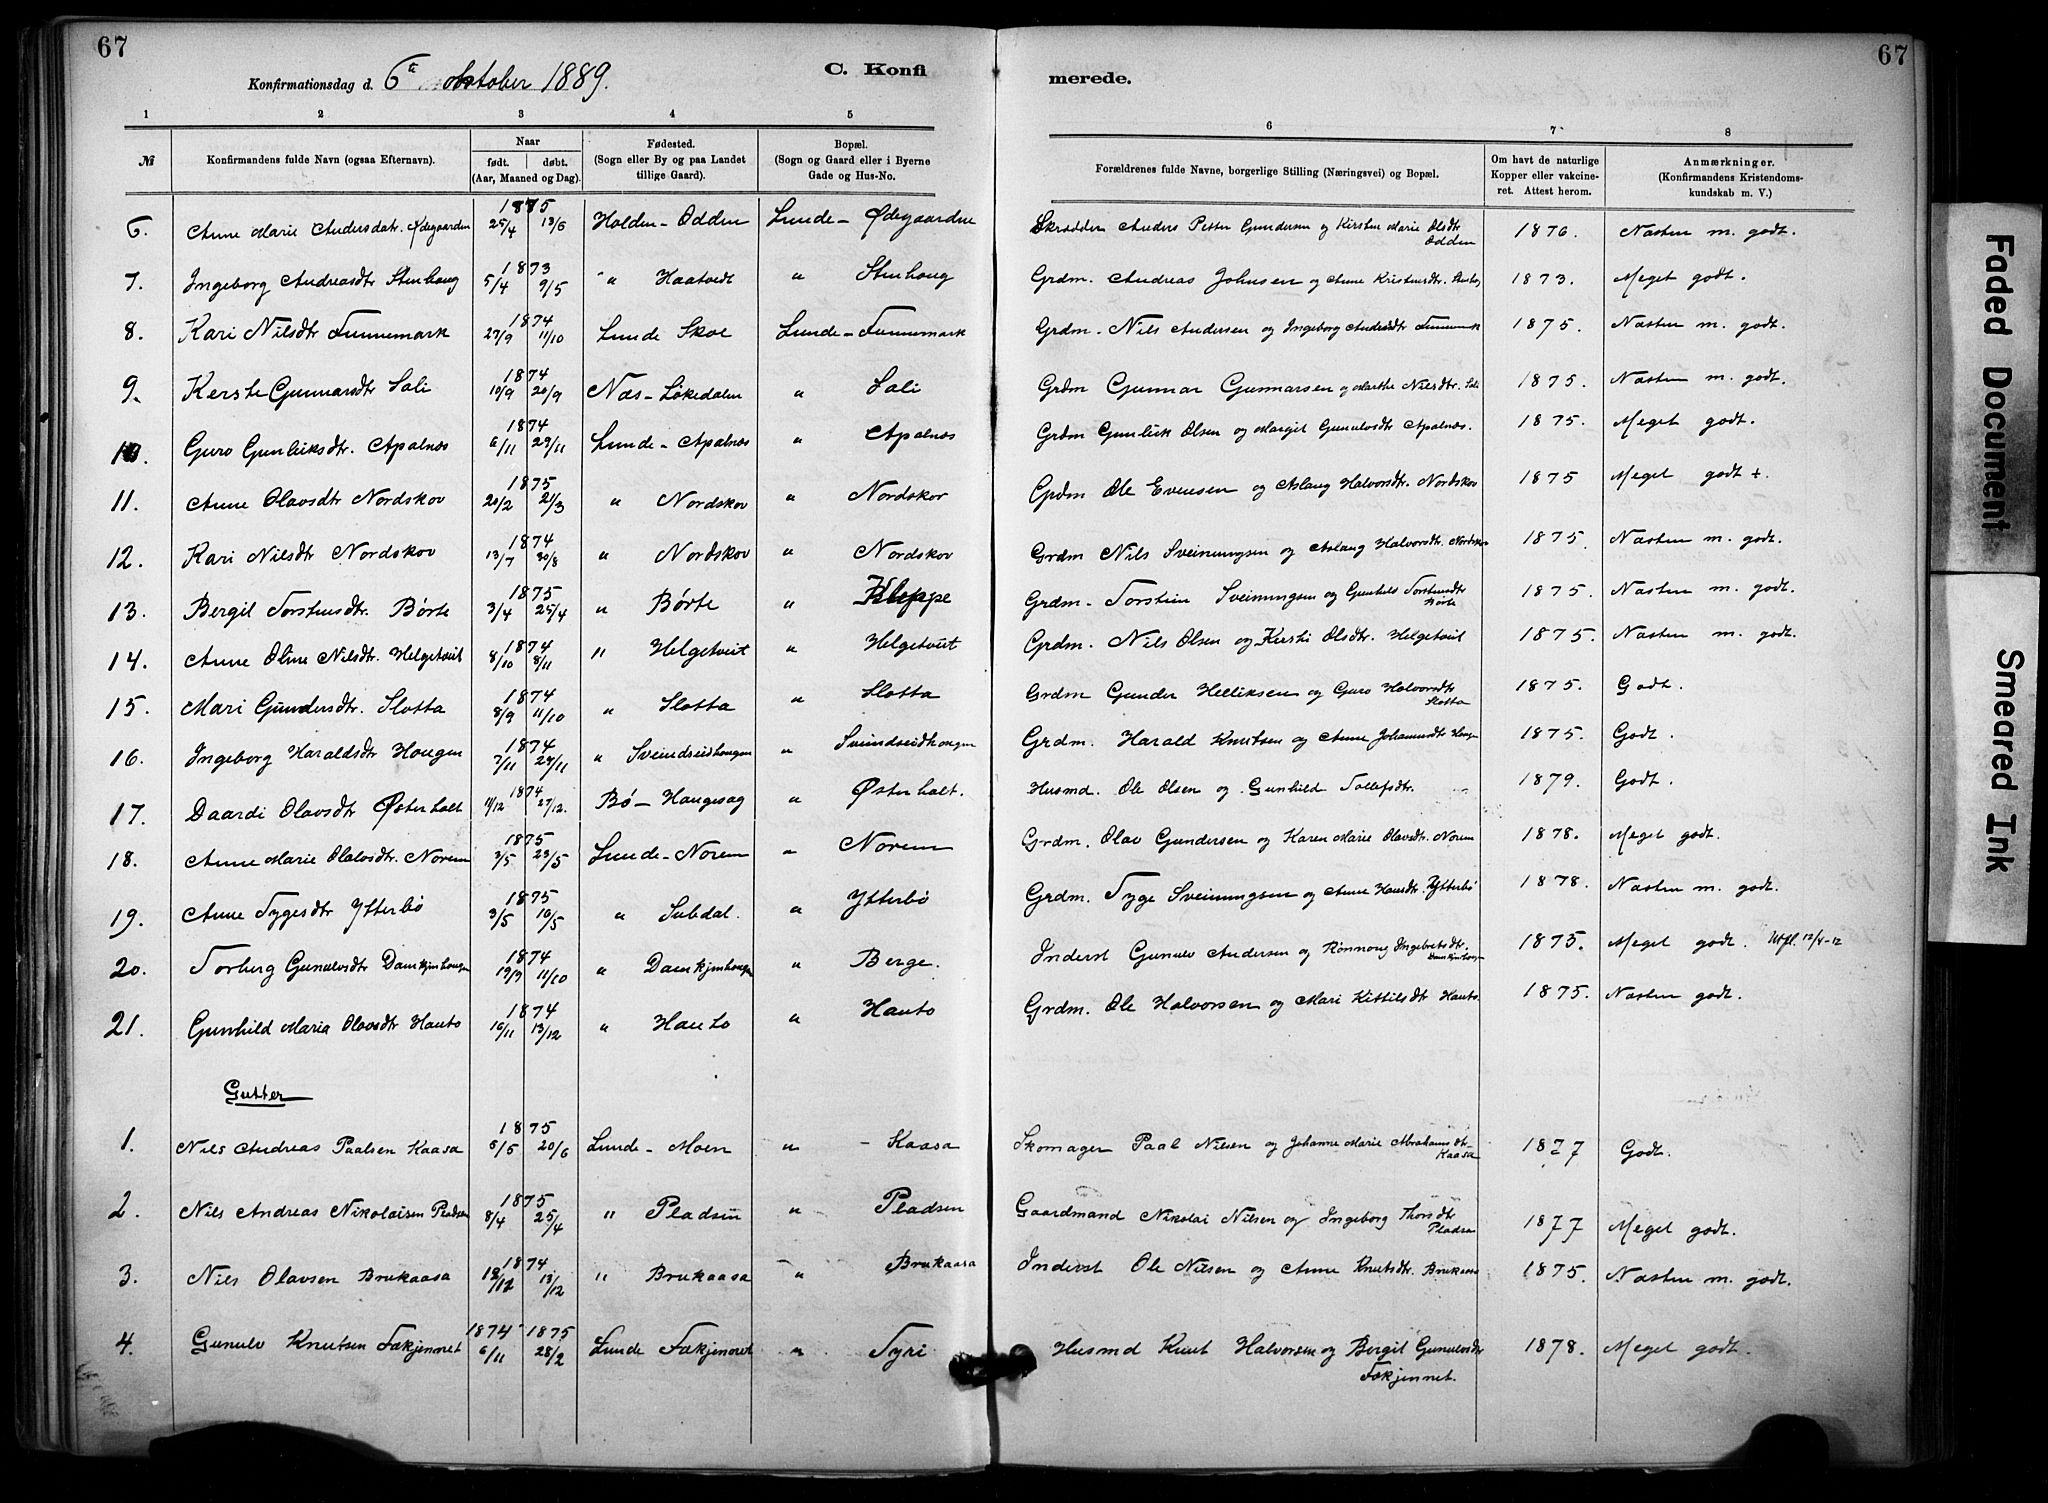 67
67
Konfirmationsdag d. 6te oktober 1889.
C. Konfi
merede.
1 2 3 4 5 6 7 8
№ Konfirmandens fulde Navn (ogsaa Efternavn). Naar født. døbt. (Aar, Maaned og Dag). Fødested. (Sogn eller By og paa Landet tillige Gaard). Bopæl. (Sogn og Gaard eller i Byerne Gade og Hus-No. Forældrenes fulde Navne, borgerlige Stilling (Næringsvei) og Bopæl. Om havt de naturlige Kopper eller vakcineret. Attest herom. Anmærkninger. (Konfirmandens Kristendomskundskab m. V.)
6. Anne Marie Andersdatr. Ødegaarden 1875 25/4 13/6 Holden - Odden Lunde - Ødegaardne Skrædder Anders Petter Gundersen og Kirsten Marie Olsdtr Odden 1876. Næsten m. godt.
7. Ingeborg Andreasdtr Stenhoug 1873 5/4 9/5 " Haatvedt " Stenhoug Grdm. Andreas Johnsen og Anne Kristensdtr. 1873. Meget godt.
8. Kari Nilsdtr Funnemark 1874 27/9 11/10 Lunde Skoe Lunde - Funnemark Grdm. Nils Andersen og Ingeborg Andersdtr Funnemark 1875. Næsten m. godt.
9. Kerste Gunnarsdtr Sali 1874 10/9 20/9 Næs - Løkedalen " Sali Grdm Gunnar Gunnarsen og Marthe Nilsdtr. Sali 1875. Næsten m. godt.
10. Guro Gunleiksdtr. Apalnæs 1874 6/11 29/11 Lunde - Apalnæs " Apalnæs Grdm Gunleik Olsen og Margit Gunulvsdtr Apalnæs. 1875. Meget godt.
11. Anne Olavsdtr Nordskov 1875 20/2 21/3 " Nordskov " Nordskov Grdm Ole Evensen og Aslaug Halvorsdtr. Nordskov 1875 Meget godt +.
12. Kari Nilsdtr Nordskov 1874 13/7 30/8 " Nordskov " Nordskov Grdm Nils Sveinungsen og Aslaug Halvorsdtr. Nordskov 1875. Næsten m. godt.
13. Bergit Torstensdtr. Børte 1875 3/4 25/4 " Børte " Kleppe Grdm. Torstein Sveinungsen og Gunhild Torstensdtr Børte 1875. Næsten m. godt.
14. Anne Oline Nilsdtr. Helgetveit 1874 8/10 8/11 " Helgetveit " Helgetveit Grdm. Nils Olsen og Kersti Olsdtr. Helgetveit 1875. Næsten m. godt.
15. Mari Gundersdtr. Slotta 1874 8/9 11/10 " Slotta " Slotta Grdm Gunder Helliksen og Guro Halvorsdtr Slotta 1875. Godt.
16. Ingeborg Haraldsdtr Hougen 1874 7/11 29/11 " Sveindseidhougen " Sveindseidhougen Grdm. Harald Knutsen og Anne Johannesdtr Hougen 1875. Godt.
17. Daardi Olavsdtr Østerholt 1874 11/12 27/12. Bø - Haugesag " Østerholt. Husmd. Ole Olsen og Gunhild Tollefsdtr. 1879. Godt.
18. Anne Marie Olavsdtr. Norem 1875 3/5 23/5 Lunde - Norem " Norem Grdm. Olav Gundersen og Karen Marie Olavsdtr. Norem 1878. Meget godt.
19. Anne Tygesdtr Ytterbø 1875 3/5 10/5 " Subdal. " Ytterbø Grdm. Tyge Sveinungsen og Anne Hansdtr. Ytterbø 1878. Næsten m. godt.
20. Torberg Gunulvsdtr Damkjenhougen 1874 19/9 11/10 " Damkjenhougen " Berge. Inderst Gunulv Andersen og Rønnoug Ingebretsdtr. Damkjenhougen 1875. Meget godt. Utfl. 12/4-12
21. Gunhild Maria Olavsdtr Hauto 1874 16/11 13/12 " Hauto " Hauto Grdm. Ole Halvorsen og Mari Kittilsdtr Hauto. 1875. Næsten godt.
Gutter
1. Nils Andreas Paalsen Kaasa 1875 8/5 20/6 Lunde - Moen " - Kaasa Skomager Paal Nilsen og Johanne Marie Abrahamsdtr. Kaasa 1877 Godt.
2. Nils Andreas Nikolaisen Pladsen 1875 8/4 25/4 " Pladsen " Pladsen Gaardmand Nikolai Nilsen og Ingeborg Thorsdtr Pladsen 1877 Meget godt.
3. Nils Olavsen Brukaasa 1874 12/12 13/12 " Brukaasa " Brukaasa Inderst Ole Nilsen og Anne Knutsdtr. Brukaasa 1875. Næsten m. godt.
4. Gunulv Knutsen Fækjennet 1874 6/11 1875 28/2 Lunde Fækjennet " Tyri Husmd Knut Halvorsen og Bergit Gunulvsdtr Fækjennet. 1878. Meget godt.
Faded Document
Smeared Ink